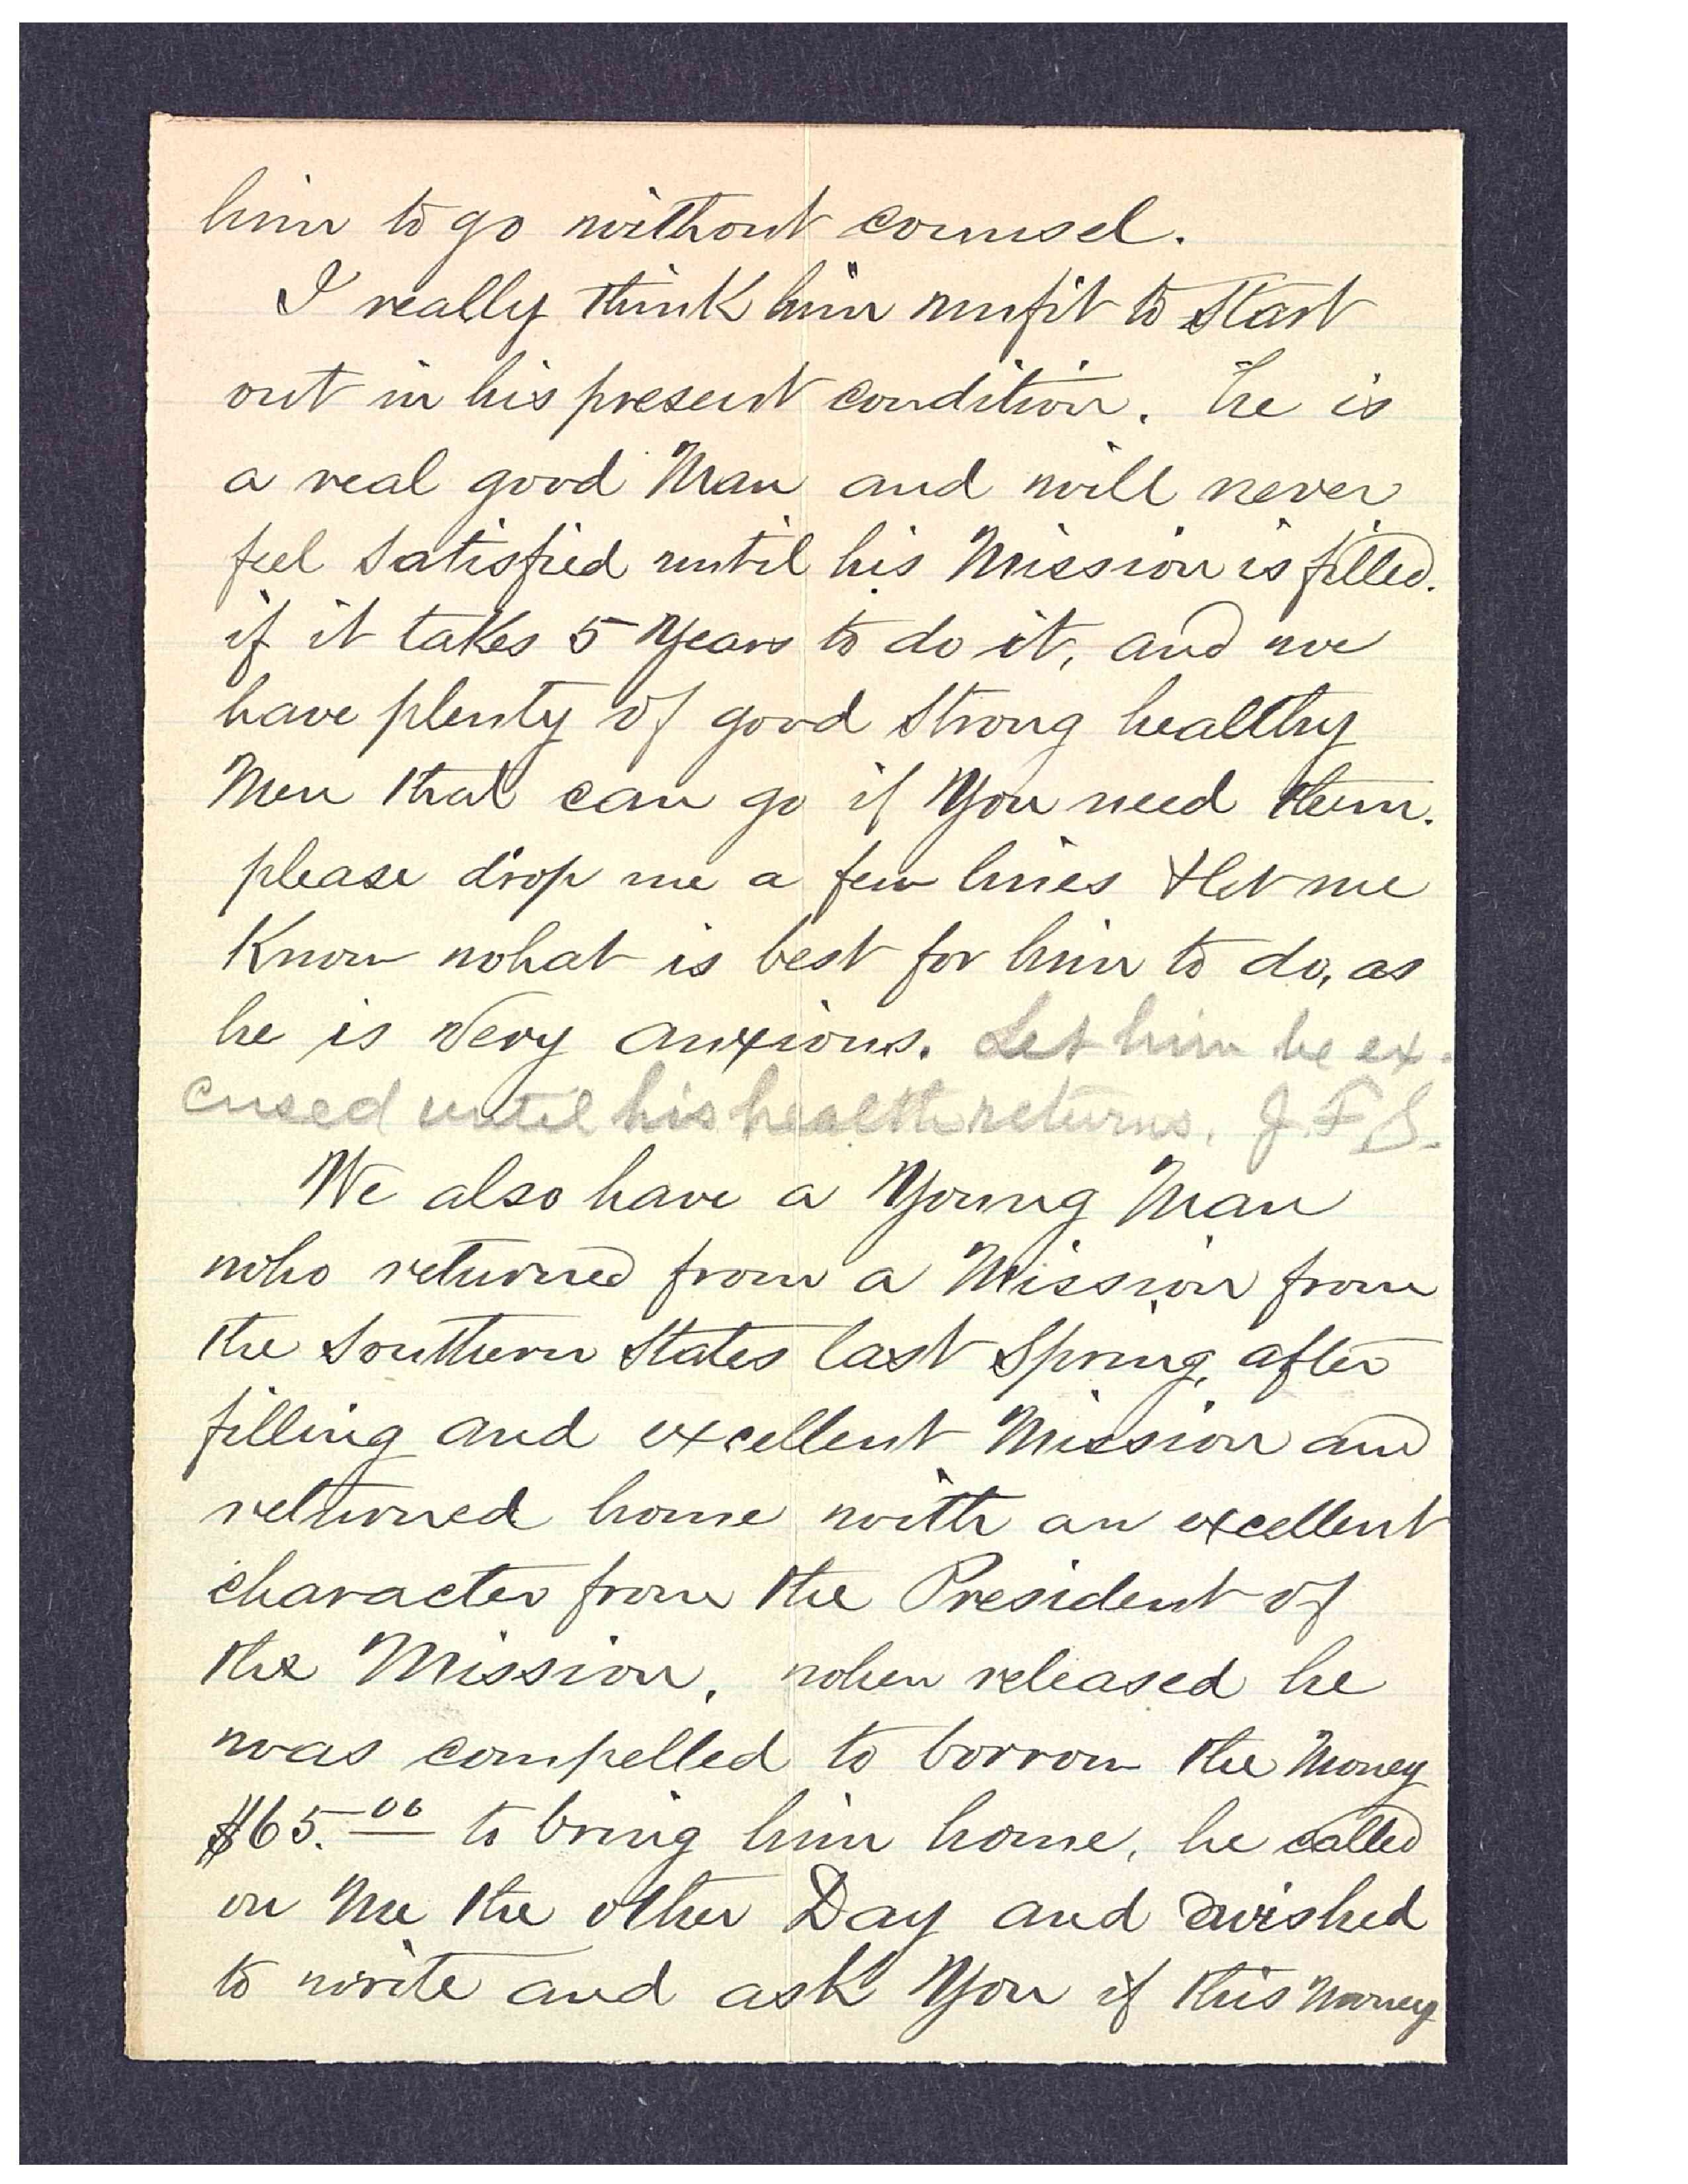 him to go without counsel.
I really think him unfit to Start
out in his present condition. he is
a real good Man and will never
feel Satisfied until his Mission is filled.
if it takes 5 Years to do it, and we
have plenty of good Strong healthy
Men that can go if You need them.
please drop me a few lines & let me
Know what is best for him to do, as
he is Very anxious. Let him be ex-
cused until his health returns. J. F. S.
We also have a Young Man
who returned from a Mission from
the Southern States last Spring, after
filling and excellent Mission and
returned home with an excellent
character from the President of
the Mission. when released he
was compelled to borrow the Money
$65.00 to bring him home, he called
on Me the other Day and wished
to write and ask You if this Money